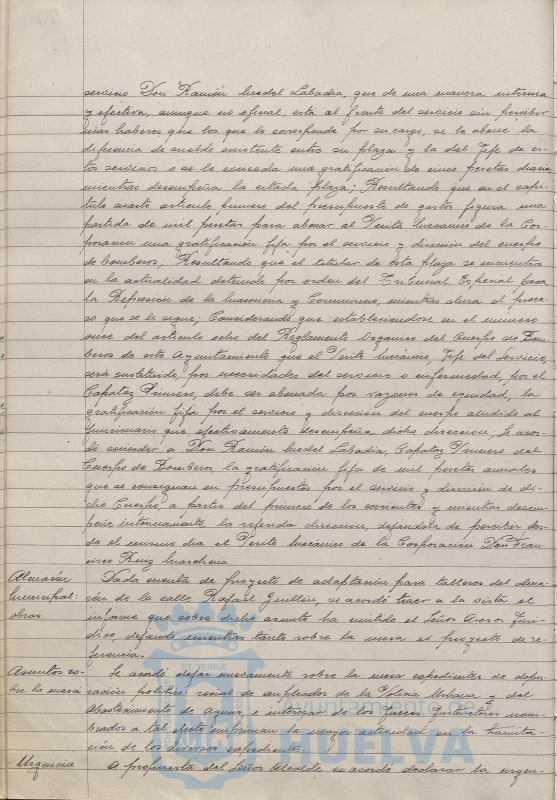 servicio Don Ramón Medel Labadía, que de una manera interina
y efectiva, aunque no oficial, está al frente del servicio sin percibir
más haberes que los que le corresponde por su cargo, se le abone la
diferencia de sueldo existente entre su plaza y la del Jefe de es-
tos servicios o se le conceda una gratificación de pesetas diarias
mientras desempeña la citada plaza; Resultando que en el capí-
tulo cuarto artículo primero del presupuesto de gastos figura una
partida de mil pesetas para abonar al Perito Mecánico de la Cor-
poración una gratificación fija por el servicio y dirección del cuerpo
de bomberos; Resultando que el titular de esta plaza se encuentra
en la actualidad detenido por orden del Tribunal Especial para
la Represión de la Masonería y Comunismo, mientras dura el proce-
so que se le sigue; Considerando que estableciéndose en el número
once del artículo ocho del Reglamento Orgánico del Cuerpo de Bom-
beros de este Ayuntamiento que el Perito Mecánico, Jefe del Servicio,
será sustituido, por necesidades del servicio o enfermedad, por el
Capataz Primero, debe ser abonada por razones de equidad, la
gratificación fija por el servicio y dirección del cuerpo aludido al
funcionario que efectivamente desempeña dicha dirección, Se acor-
dó conceder a Don Ramón Medel Labadía, Capataz Primero del
Cuerpo de Bomberos, la gratificación fija de mil pesetas anuales
que se consignan en presupuestos por el servicio y dirección de di-
cho Cuerpo, a partir del primero de los corrientes y mientras desem-
peñe interinamente la referida dirección, dejándola de percibir des-
de el mismo día el Perito Mecánico de la Corporación Don Fran-
cisco Ruiz Marchena
Almacén Dada cuenta de proyecto de adaptación para talleres del alma-
municipal: cén de la calle Rafael Guillén, se acordó traer a la vista el
obras. informe que sobre dicho asunto ha emitido el Señor Asesor Jurí-
dico, dejando mientras tanto sobre la mesa el proyecto de re-
ferencia.
Asuntos so- Se acordó dejar nuevamente sobre la mesa expedientes de depu-
bre la mesa ración político social de empleados de la Policía Urbana y del
Abastecimiento de Aguas, e interesar de los Jueces Instructores nom-
brados a tal efecto impriman la mayor actividad en la tramita-
ción de los diversos expedientes.
Urgencia A propuesta del Señor Alcalde se acordó declarar la urgen-
ET TERRÆ
Ayuntamiento de
HUELVA